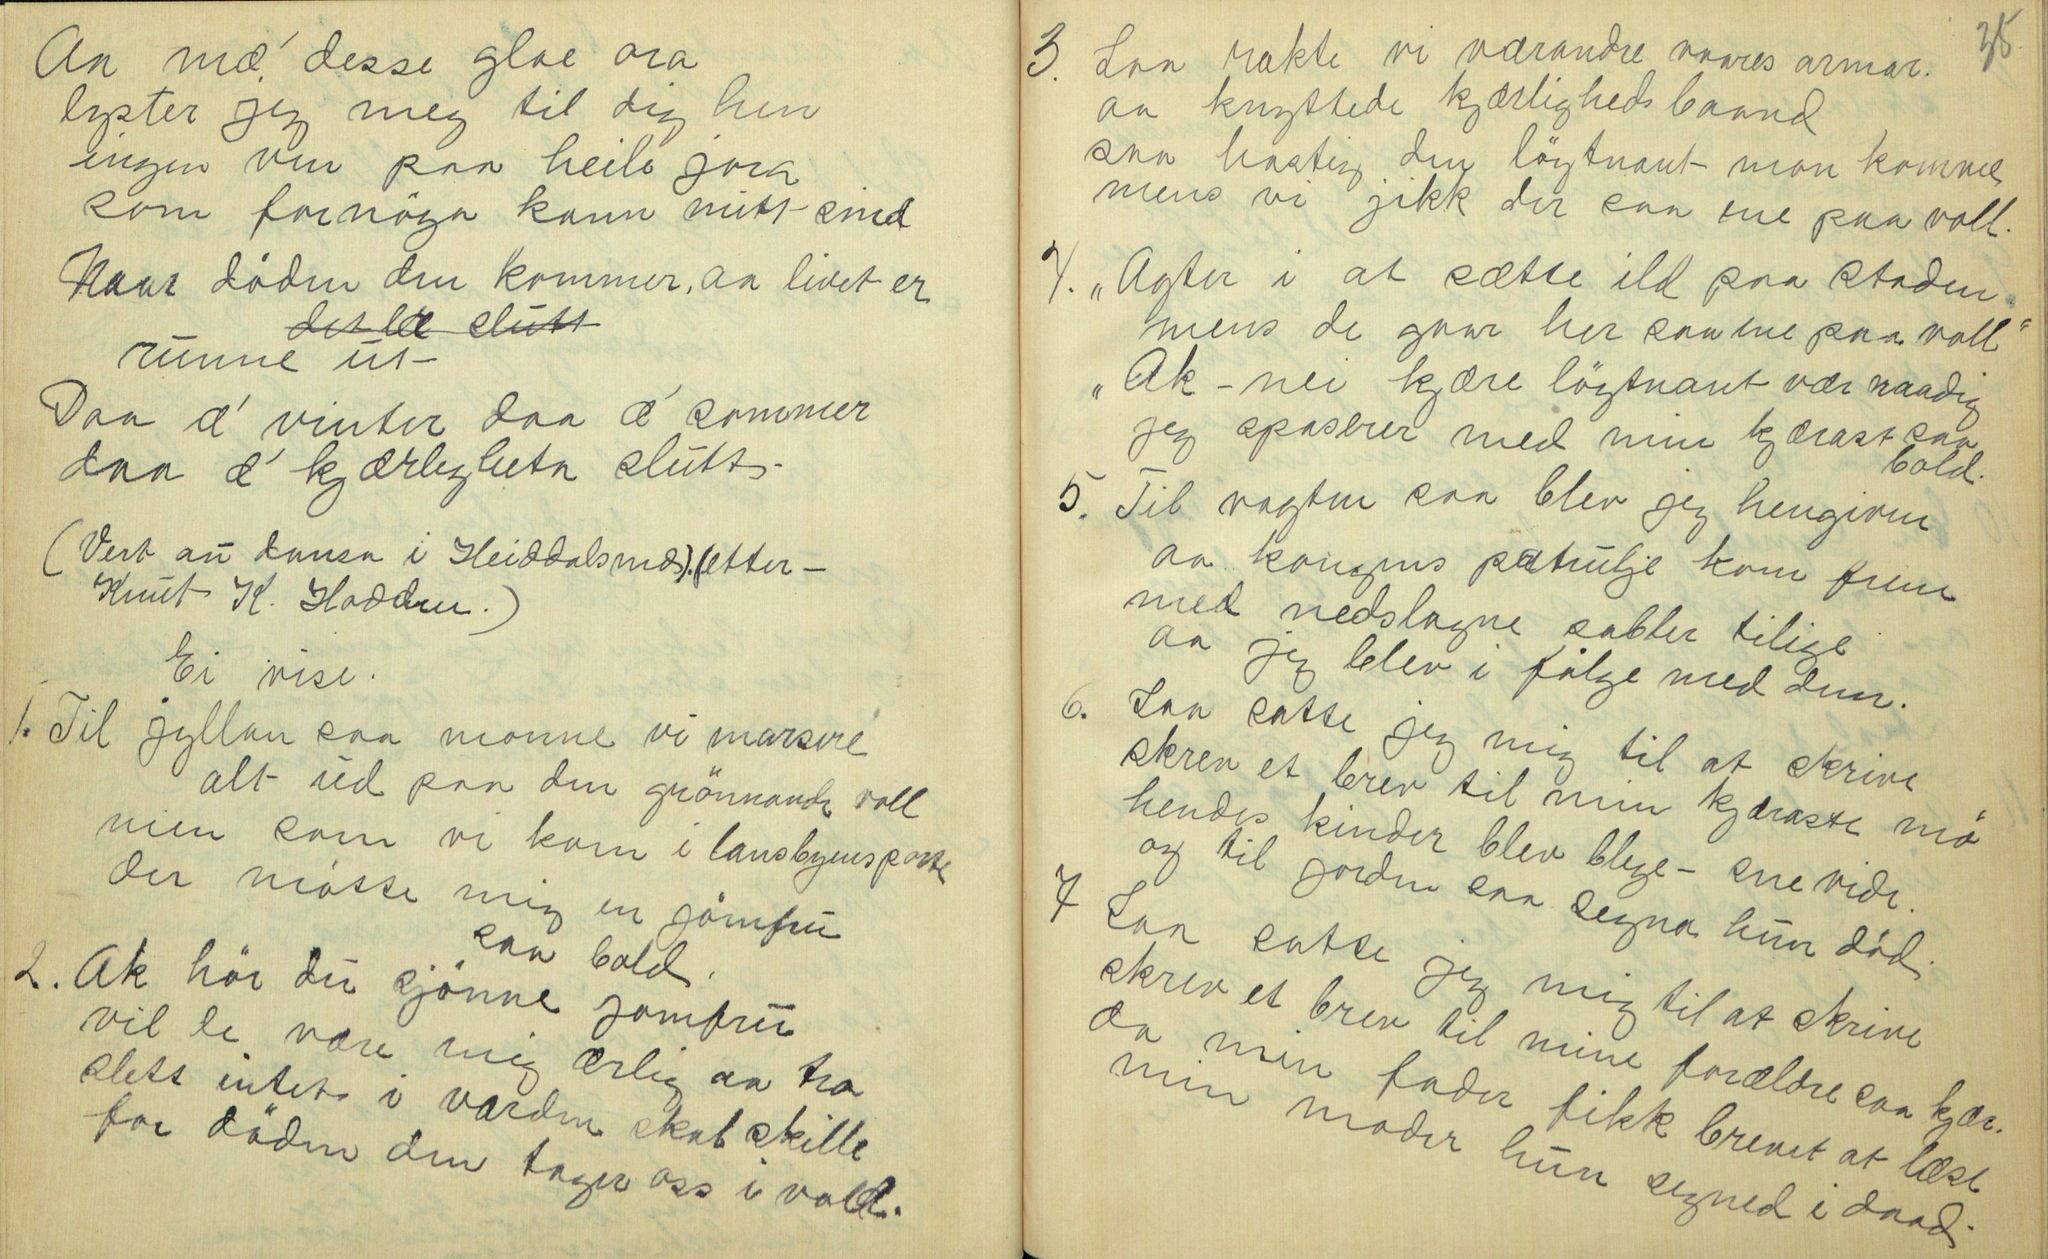 Aa mæ' desse gloe ora
lyster jeg meg til dig hen
ingen ven paa heile jora
som fornöga kann mitt sind
Naar döden den kommer, aa livet er
det læ slutt
runne ut
Daa æ' vinter daa æ' sommer
daa æ' kjærligheta slutt.
(Vert au dansa i Heiddalsmæs). (etter
Knut K. Hodden.)
Ei vise.
1. Til jyllan saa monne vi marsere
alt ud paa den grönnande voll
men som vi kom i lansbyens porte
der mötte mig en jömfru
saa bold.
2. Ak hör du sjönne jomfru
vil le være mig ærlig aa tro
slett intet i varden skal skille
for döden den tager oss i vold.
35.
3. Saa rakte vi værandre vaares armar.
aa knyttede kjærligheds baand
saa hastig den löytnant mon komme
mens vi jikk der saa ene paa voll.
4. "Agter i at sætte ild paa staden
mens de gaar her saa ene paa voll"
"Ak - nei kjære löytnant vær naadig
jeg spaserer med min kjærast saa
bold.
5. Til vagten saa blev jeg hengiven
aa kongens patrulje kom frem
med nedslagne sabler tilige
aa jeg blev i fölge med dem.
6. Saa satte jeg mig til at skrive
skrev et brev til min kjæraste mö
hendes kinder blev blege - sne vide.
og til jorden saa segna hun död.
7 Saa satte jeg mig til at skrive
skrev et brev til mine forældre saa kjær.
da min fader fikk brevet at læse
min moder hun segned i daad.